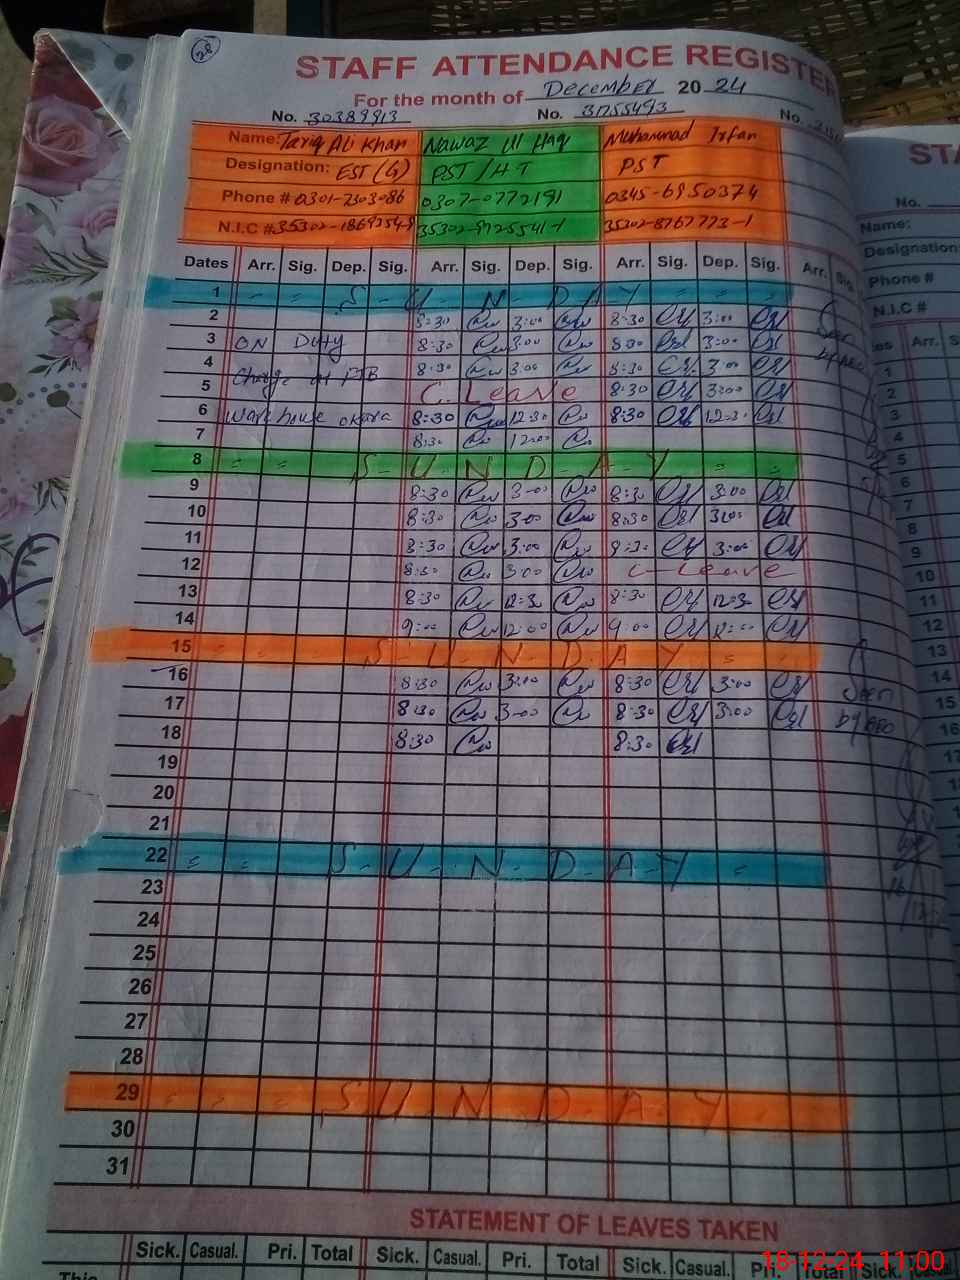 28
STAFF ATTENDANCE REGISTER
For the month of December 20 24
No. 30389913 No. 31755493 No.
Name: Tariq Ali Khan Nawaz Ul Haq Muhammad Irfan
Designation: EST (G) PST / HT PST
Phone # 0301-7303086 0307-0772191 0345-6950374
N.I.C # 35302-1869254-9 35302-9725541-1 35302-8767773-1
Dates Arr. Sig. Dep. Sig. Arr. Sig. Dep. Sig. Arr. Sig. Dep. Sig. Arr. Sig.
1 S-U-N-DAY
2 8:30 3:00 8:30 3:00
3 ON Duty 8:30 3:00 8:30 3:00
4 Charge at 8:30 3:00 8:30 3:00
5 C. Leave 8:30 3:00
6 Warehouse okara 8:30 12:30 8:30 12:30
7 8:30 12:00
8 S-U-N-D-A-Y
9 8:30 3:00 8:30 3:00
10 8:30 3:00 8:30 3:00
11 8:30 3:00 8:30 3:00
12 8:30 3:00 C-Leave
13 8:30 12:30 8:30 12:30
14 9:00 12:00 9:00 12:00
15 S-U-N-D-A-Y
16 8:30 3:00 8:30 3:00 Seen
17 8:30 3:00 8:30 3:00 by AEO
18 8:30 8:30
19
20
21
22 S-U-N-D-A-Y
23
24
25
26
27
28
29 S-U-N-D-A-Y
30
31
STATEMENT OF LEAVES TAKEN
Sick. Casual. Pri. Total Sick. Casual. Pri. Total Sick. Casual. Pri. Total Sick.
This
18-12-24 11:00
STA
No.
Name:
Designation:
Phone #
N.I.C #
Arr. S
1
2
3
4
5
6
7
8
9
10
11
12
13
14
15
16